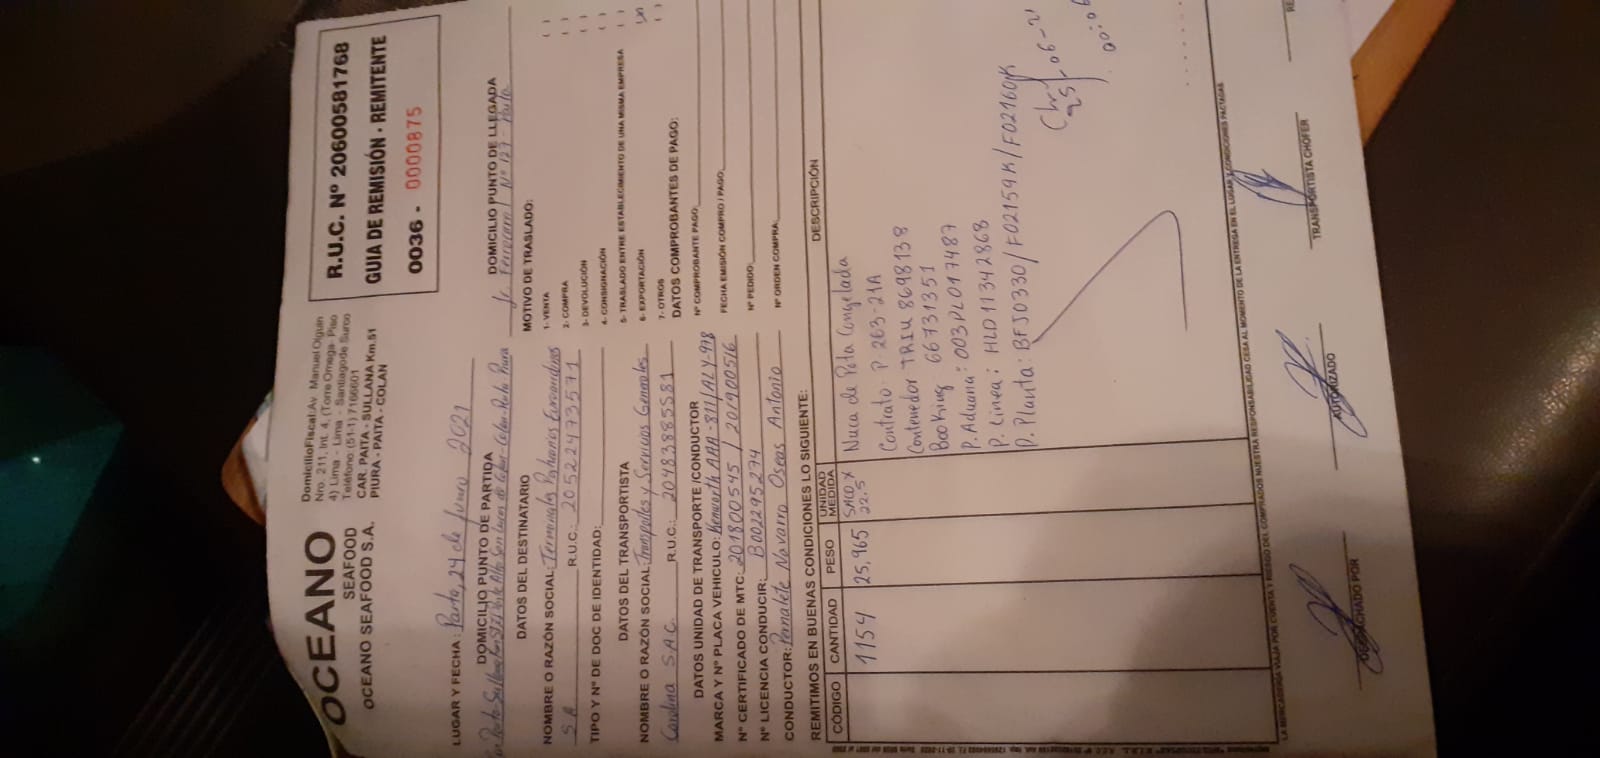 OCEANO
SEAFOOD
OCEANO SEAFOOD S.A.
Domicilio Fiscal: Av. Manuel Olguin
Nro. 211, Int. 4, (Torre Omega- Piso
4) Lima - Lima - Santiago de Surco
Teléfono: (51-1) 7166601
CAR. PAITA - SULLANA Km.51
PIURA - PAITA - COLAN
R.U.C. Nº 20600581768
GUIA DE REMISIÓN - REMITENTE
0036 - 0000875
LUGAR Y FECHA: Paita, 24 de Junio 2021
DOMICILIO PUNTO DE PARTIDA
DOMICILIO PUNTO DE LLEGADA
Jr. Ferrocarril Nº 127 - Paita
DATOS DEL DESTINATARIO
NOMBRE O RAZÓN SOCIAL: Terminales Portuarios Euroandinos
S.A R.U.C.: 20522473571
TIPO Y Nº DE DOC DE IDENTIDAD:
DATOS DEL TRANSPORTISTA
NOMBRE O RAZÓN SOCIAL: Transportes y Servicios Generales
Carolina S.A.C. R.U.C.: 20483885581
DATOS UNIDAD DE TRANSPORTE /CONDUCTOR
MARCA Y Nº PLACA VEHICULO: Kenworth AAA-811/ALY-978
Nº CERTIFICADO DE MTC: 201800545 / 201900516
Nº LICENCIA CONDUCIR: B002295274
CONDUCTOR: Pernalete Navarro Oseas Antonio
MOTIVO DE TRASLADO:
1- VENTA ( )
2- COMPRA ( )
3- DEVOLUCIÓN ( )
4- CONSIGNACIÓN ( )
5- TRASLADO ENTRE ESTABLECIMIENTO DE UNA MISMA EMPRESA ( )
6- EXPORTACIÓN
7- OTROS ( )
DATOS COMPROBANTES DE PAGO:
Nº COMPROBANTE PAGO:
FECHA EMISIÓN COMPRO / PAGO:
Nº PEDIDO:
Nº ORDEN COMPRA:
REMITIMOS EN BUENAS CONDICIONES LO SIGUIENTE:
CÓDIGO CANTIDAD PESO UNIDAD MEDIDA DESCRIPCIÓN
1154 25,965 SACO X 22.5 Nuca de Pota Congelada
Contrato: P 263-21A
Contenedor TRIU 8698138
Booking 66731351
P. Aduana: 003PL017487
P. Linea: HLD11342868
P. Planta: BFJ0330/F02159K/F02160JK
LA MERCADERIA VIAJA POR CUENTA Y RIESGO DEL COMPRADOR NUESTRA RESPONSABILIDAD CESA AL MOMENTO DE LA ENTREGA EN EL LUGAR Y CONDICIONES PACTADAS
DESPACHADO POR
AUTORIZADO
TRANSPORTISTA CHOFER